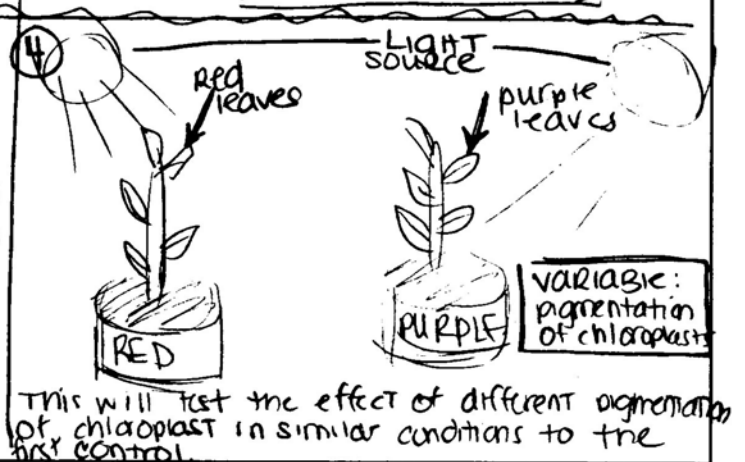 4
LIGHT
SOURCE
Red
leaves
purple
leaves
RED
PURPLE
VARIABLE:
pigmentation
of chloroplasts
This will test the effect of different pigmentation
of chloroplast in similar conditions to the
first control.